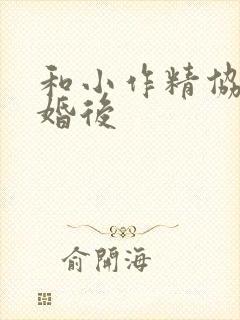 和小作精協
婚後
俞開海